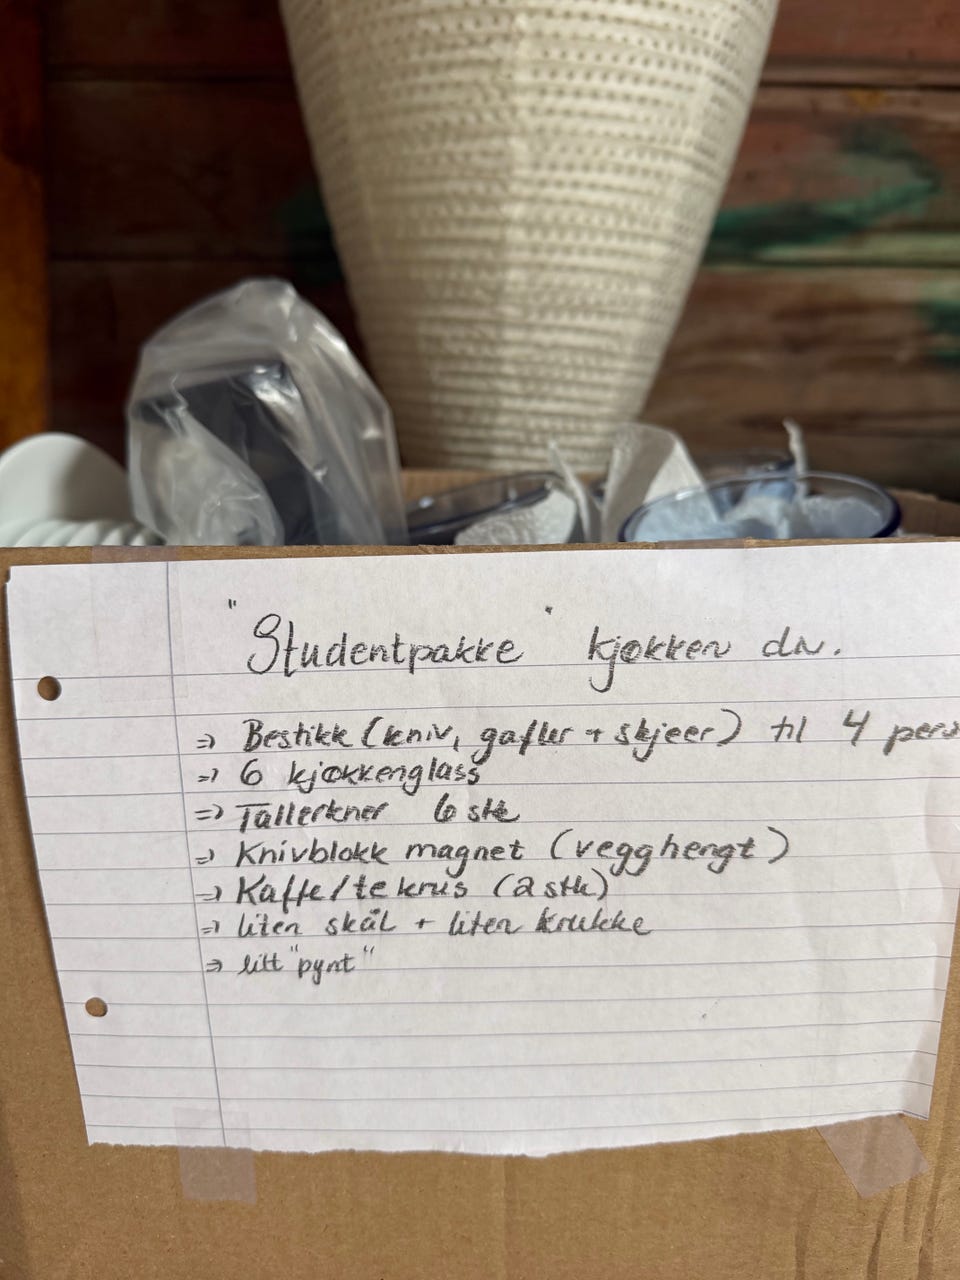 "Studentpakke" kjøkken div.
⇒ Bestikk (kniv, gafler + skjeer) til 4 pers
⇒ 6 kjøkkenglass
⇒ Tallerkner 6 stk
⇒ Knivblokk magnet (vegghengt)
⇒ Kaffe/te krus (2 stk)
⇒ liten skål + liten krukke
⇒ litt "pynt"